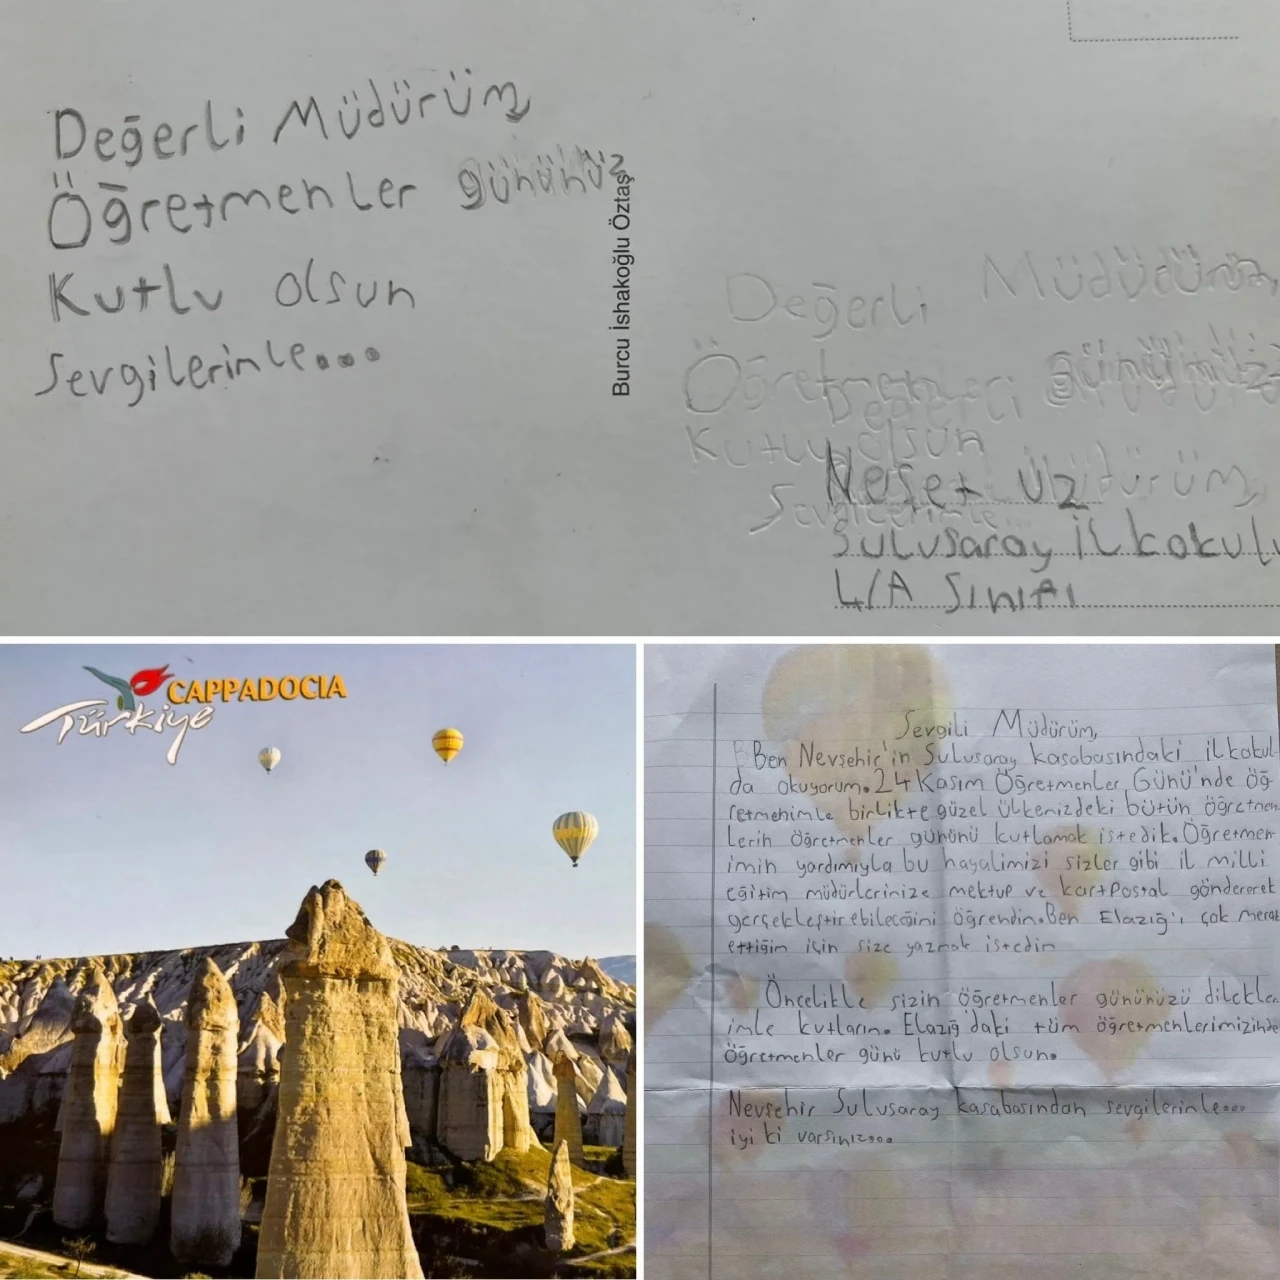 Değerli Müdürüm,
Öğretmenler gününüz
Kutlu olsun
Sevgilerimle...
Burcu İshakoğlu Öztaş
Değerli Müdürüm,
Öğretmenler gününüz
Kutlu olsun
Sevgilerimle...
Neşet Üz
Sulusaray İlkokulu
4/A Sınıfı
Türkiye
CAPPADOCIA
Sevgili Müdürüm,
Ben Nevşehir'in Sulusaray kasabasındaki ilkokul-
da okuyorum. 24 Kasım Öğretmenler Günü'nde öğ-
retmenimle birlikte güzel ülkemizdeki bütün öğretmen
lerin öğretmenler gününü kutlamak istedik. Öğretmen-
imin yardımıyla bu hayalimizi sizler gibi il milli
eğitim müdürlerimize mektup ve kartpostal göndererek
gerçekleştirebileceğini öğrendim. Ben Elazığ'ı çok merak
ettiğim için size yazmak istedim
Öncelikle sizin öğretmenler gününüzü dilekler
imle kutlarım. Elazığ'daki tüm öğretmenlerimizinde
Öğretmenler günü kutlu olsun.
Nevşehir Sulusaray kasabasından sevgilerimle....
iyi ki varsınız....